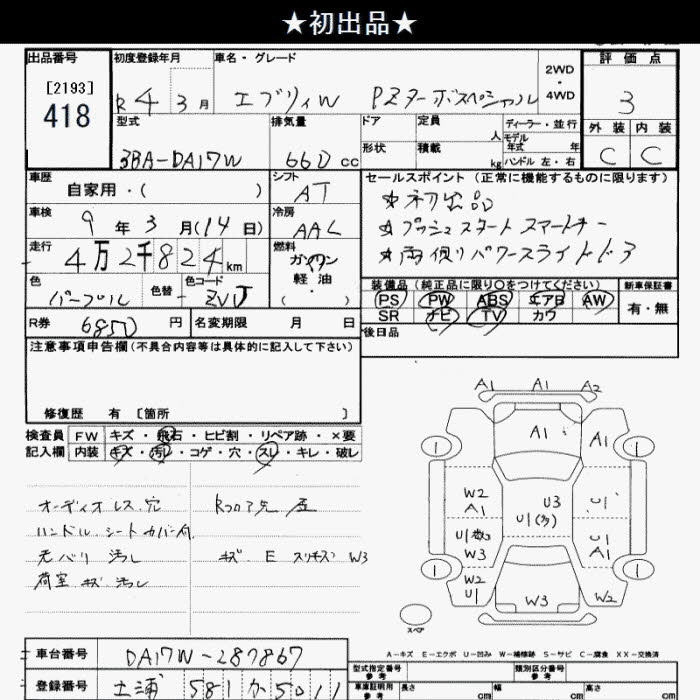 ★初出品★
出品番号 初度登録年月 車名・グレード 評価点
[2193]
418
R 4 3 月 エブリィW PZターボスペシャル
2WD
・
4WD
3
型式 排気量 ドア 定員 人 ディーラー・並行 外装 内装
3BA-DA17W 660 cc 形状 積載 kg モデル年式 年 ハンドル 左・右 C C
車歴 自家用・( ) シフト AT
セールスポイント(正常に機能するものに限ります)
★初出品
★プッシュスタート スマートキー
★両側パワースライドドア
車検 9 年 3 月(14 日) 冷房 AAC
走行 4万2千824 km 燃料 ガソリン
軽油
・( )
色 パープル 色替 色コード ZVJ
装備品(純正品に限り○をつけてください) 新車保証書
PS PW ABS エアB AW 有・無
SR ナビ TV カワ
R券 6850 円 名変期限 月 日 後日品
注意事項申告欄(不具合内容等は具体的に記入して下さい)
修復歴 有 [箇所 ]
検査員 FW キズ・飛石・ヒビ割・リペア跡・×要
記入欄 内装 キズ・汚レ・コゲ・穴・スレ・キレ・破レ
オーディオレス.穴
ハンドル.シートカバー付
汚レ
荷室 キズ 汚レ
キズ E W3
A1 A1 A2
A1 A1
1 1
W2
A1
U3
U1(多)
U1
W3
U1
A1
1 1
W2
U1
W3 W2
スペア
A-キズ E-エクボ U-凹み W-補修跡 S-サビ C-腐食 XX-交換済
車台番号 DA17W-287867
型式指定番号 参考 類別区分番号 参考
登録番号 土浦 581 か 5011
車庫証明用 参考 長さ cm 幅 cm 高さ cm